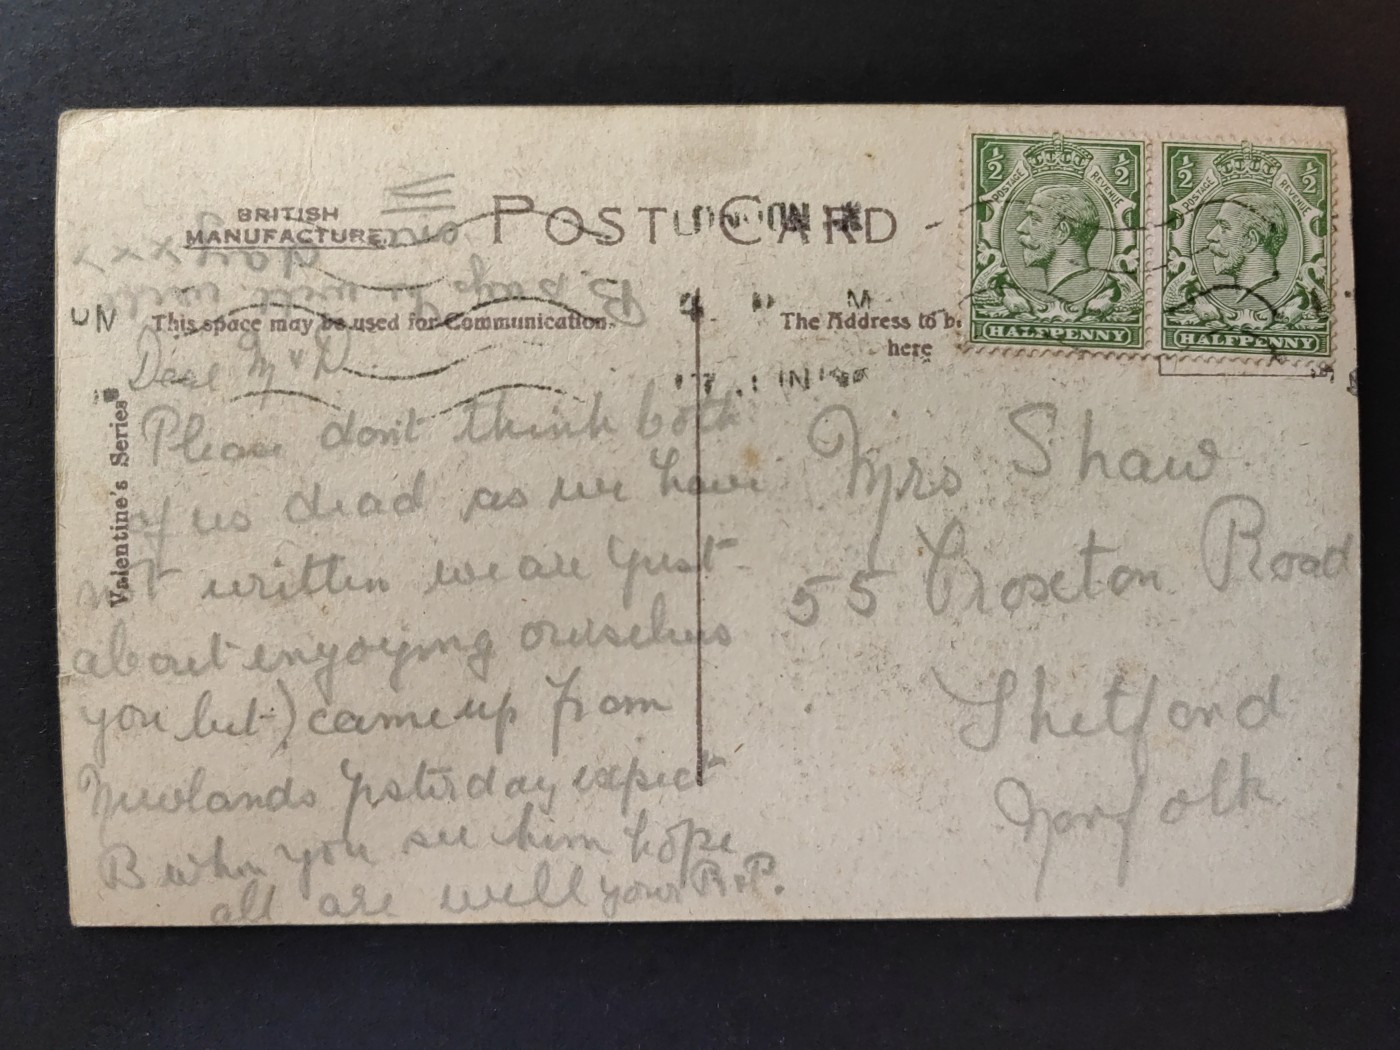 BRITISH
MANUFACTURE
POST CARD
LONDON
4 P M
17 JUN
This space may be used for Communication.
The Address to b
here
½ POSTAGE REVENUE ½
HALFPENNY
½ POSTAGE REVENUE ½
HALFPENNY
Valentine's Series
Dear M & D
Please dont think both
of us dead as we have
not written we are just
about enjoying ourselves
you bet) came up from
Newlands yesterday expect
B when you see him hope
all are well your R & P.
B. says he will write
xxx
Mrs Shaw
55 Croxton Road
Thetford
Norfolk